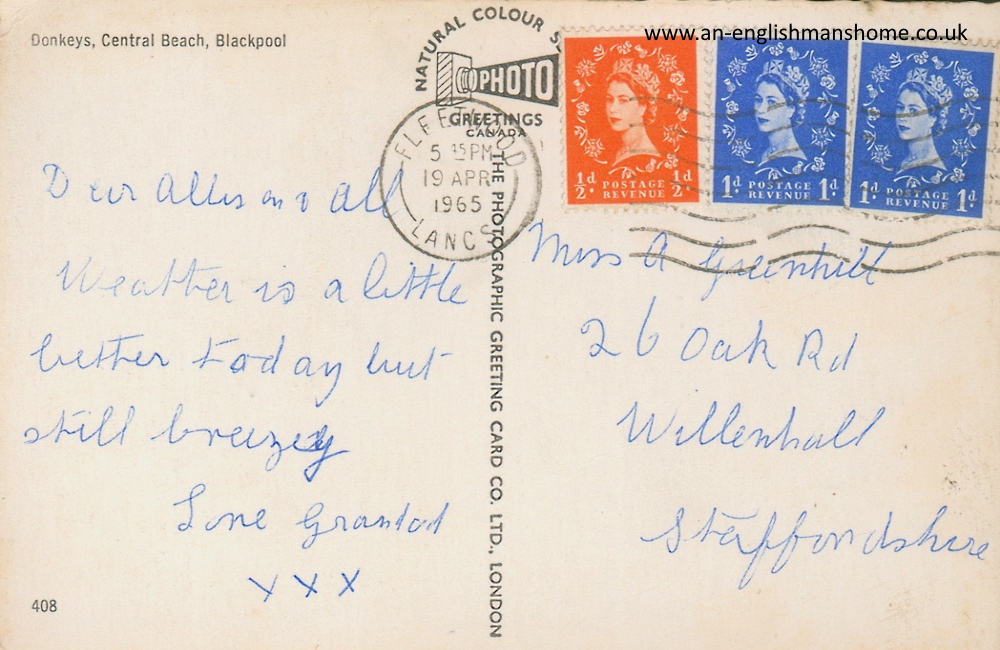 www.an-englishmanshome.co.uk
Donkeys, Central Beach, Blackpool
NATURAL COLOUR
PHOTO
GREETINGS
CANADA
FLEETWOOD
5 15 PM
19 APR
1965
LANCS
½d ½d
POSTAGE
REVENUE
1d 1d
POSTAGE
REVENUE
1d 1d
POSTAGE
REVENUE
Dear Allison & All
Weather is a little
better today but
still breezey
Love Grandad
x x x
408
THE PHOTOGRAPHIC GREETING CARD CO. LTD., LONDON
Miss A Greenhill
26 Oak Rd
Willenhall
Staffordshire